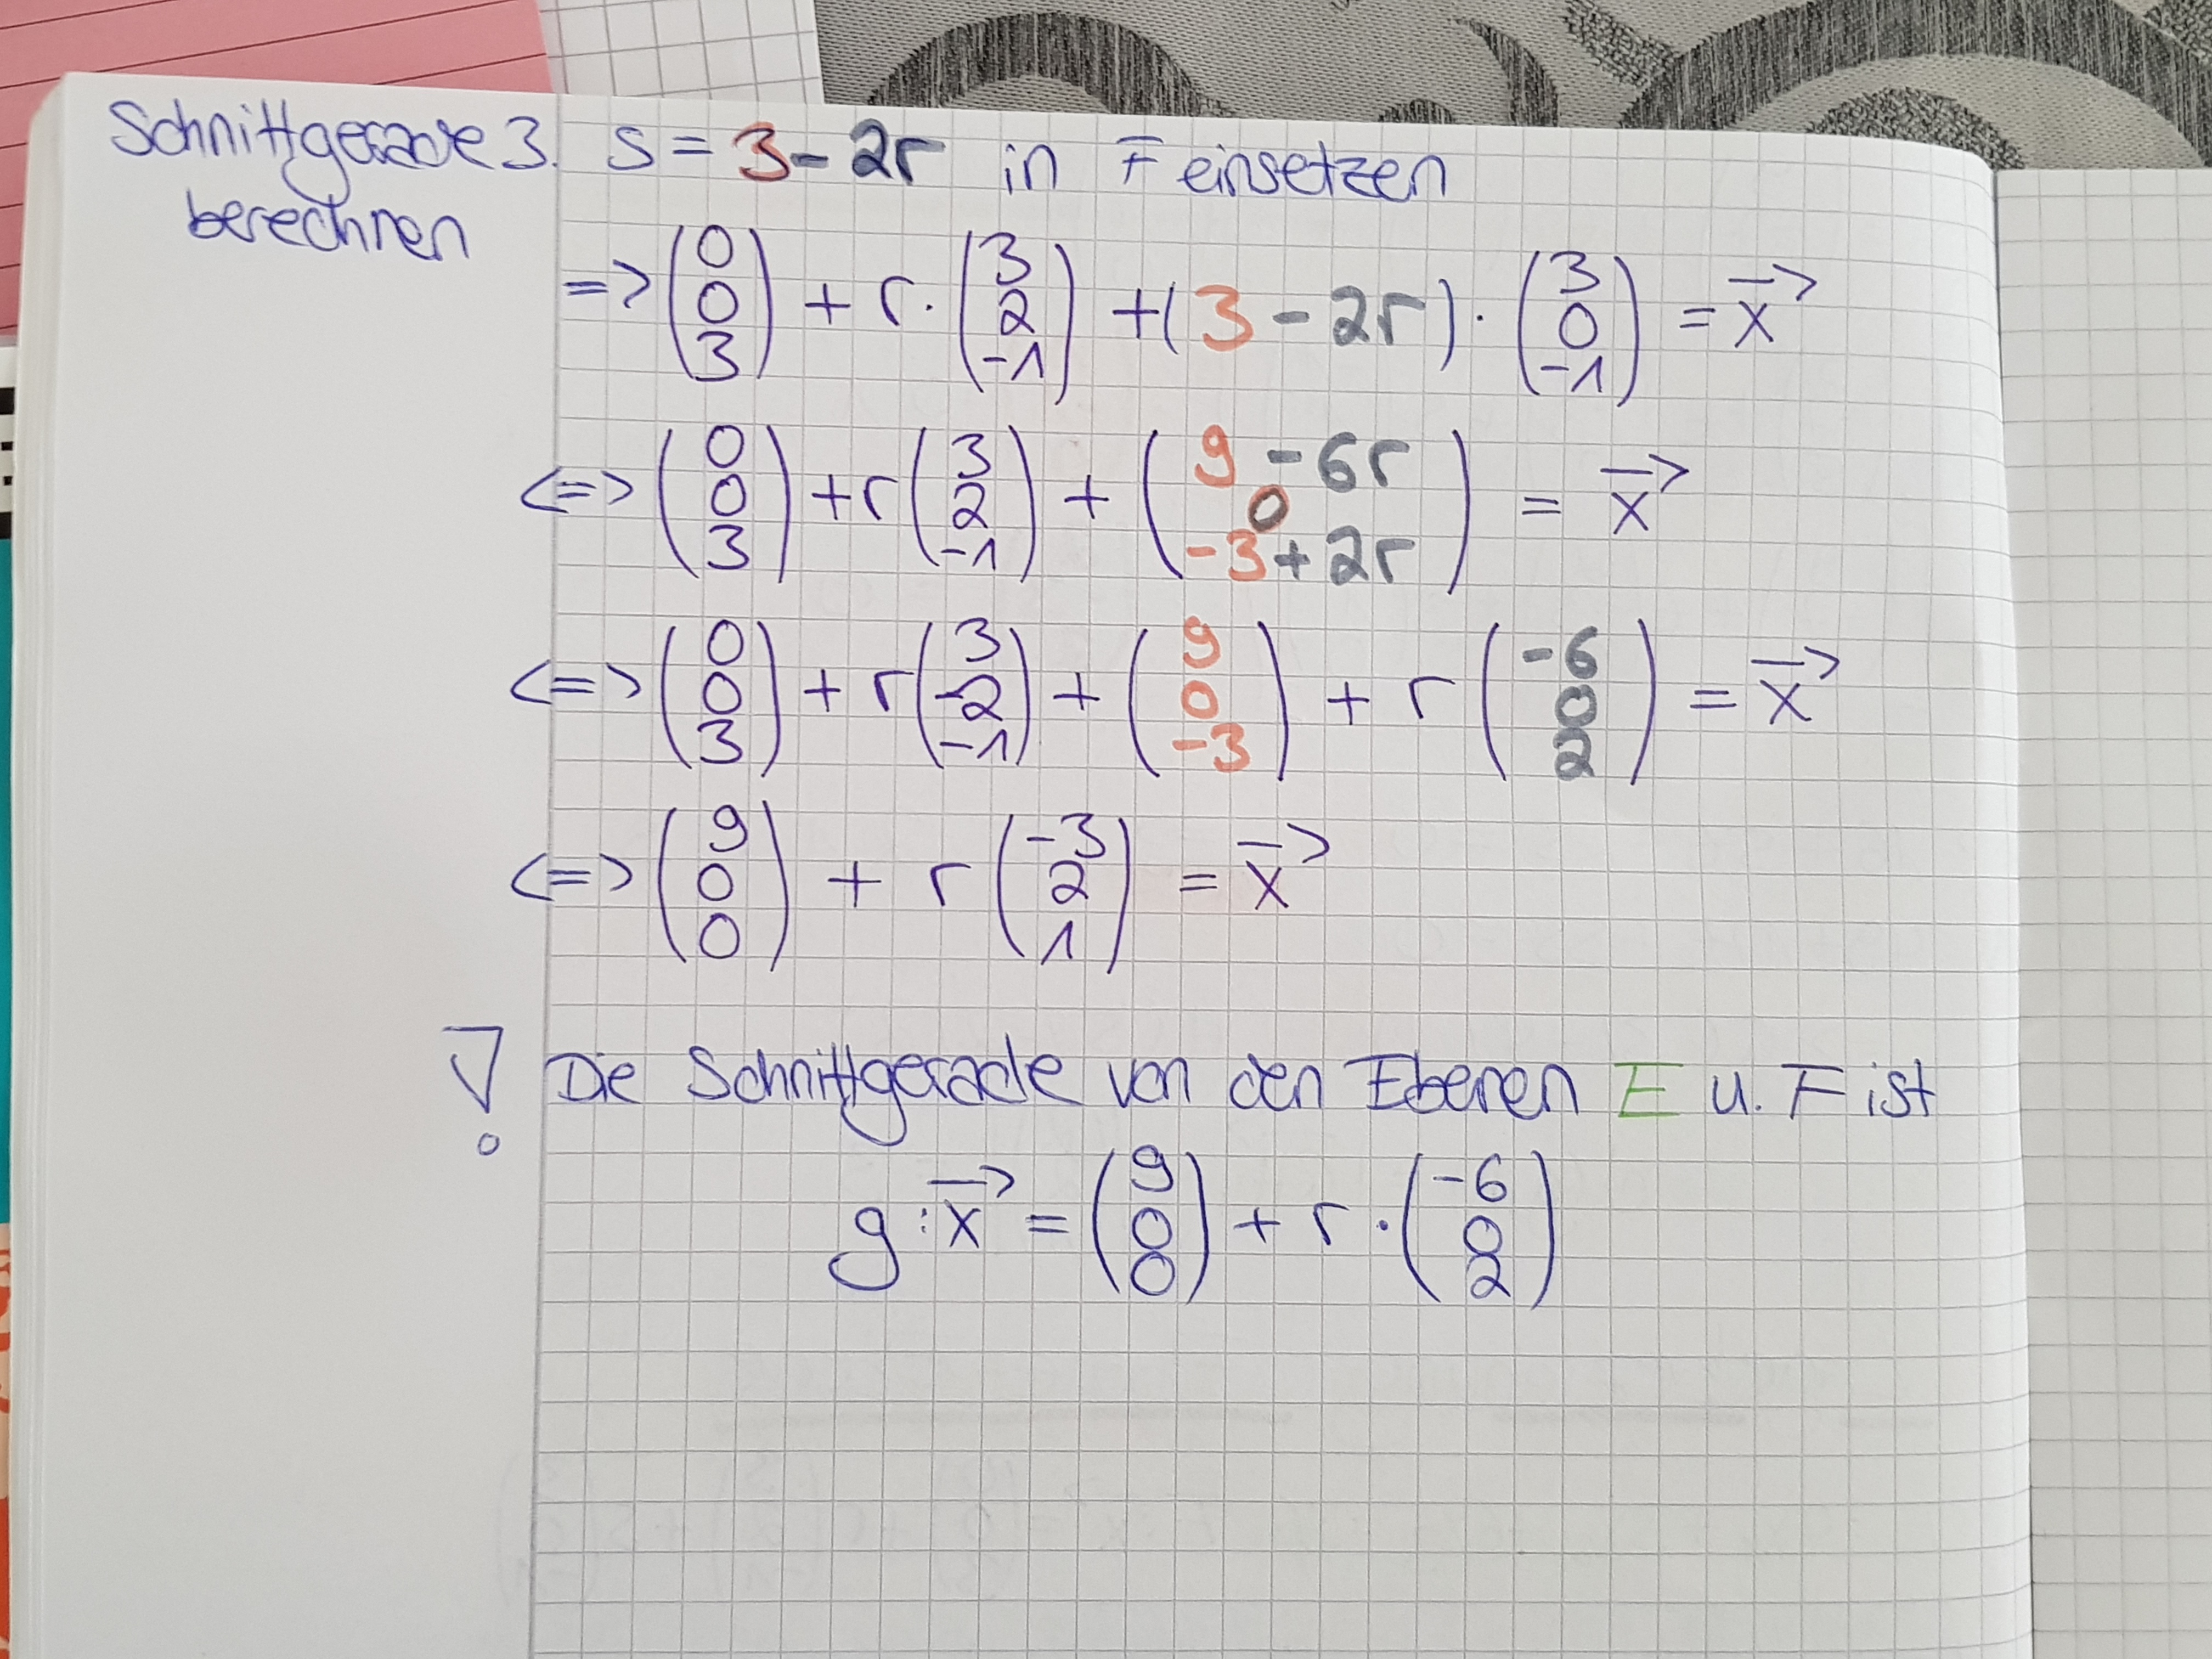 Schnittgerade 3. s = 3 - 2r in F einsetzen
berechnen
=> (0 0 3) + r · (3 2 -1) + (3 - 2r) · (3 0 -1) = x⃗
<=> (0 0 3) + r (3 2 -1) + (9 - 6r 0 -3 + 2r) = x⃗
<=> (0 0 3) + r (3 2 -1) + (9 0 -3) + r (-6 0 2) = x⃗
<=> (9 0 0) + r (-3 2 1) = x⃗
! Die Schnittgerade von den Ebenen E u. F ist
g : x⃗ = (9 0 0) + r · (-6 0 2)